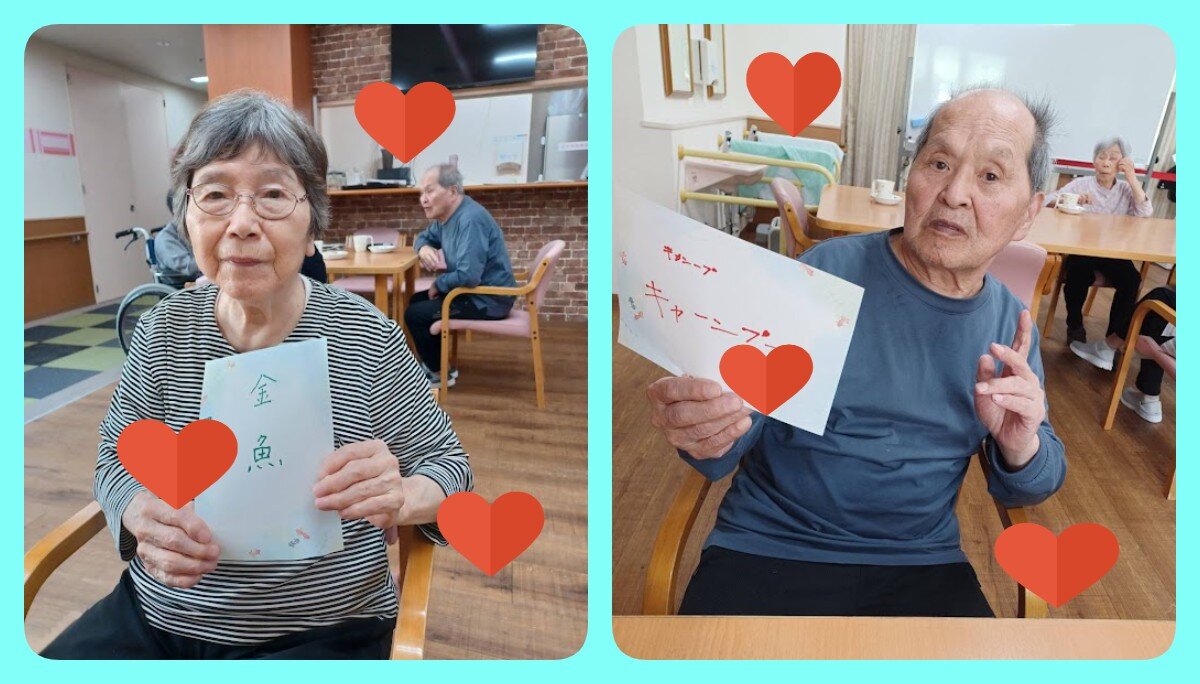 金魚
キャンープ
キャーンプ